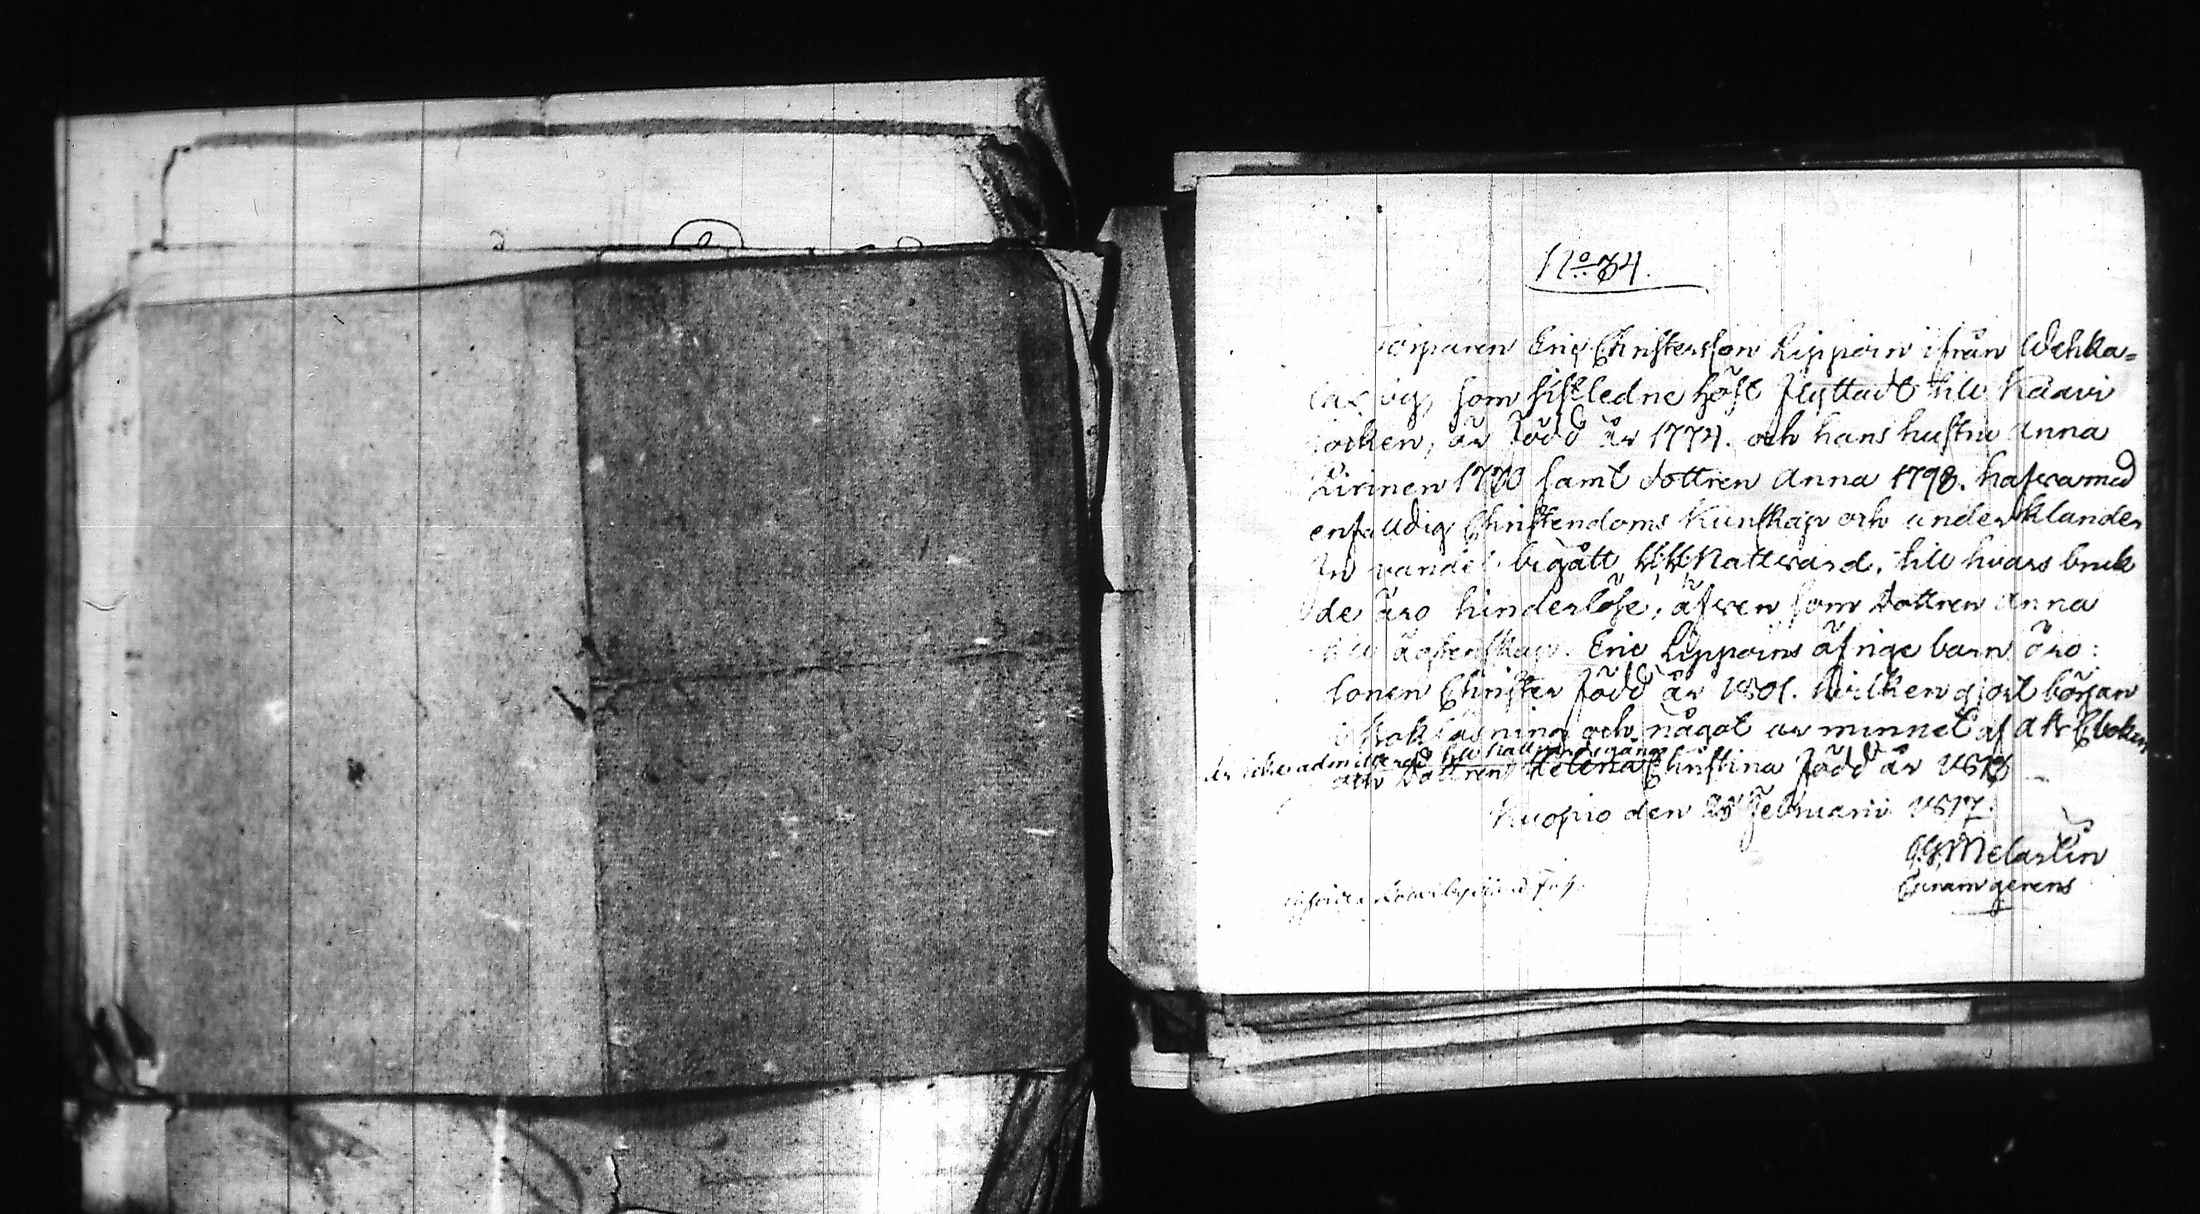 No 34.
Torparen Eric Christersson Lipposin ifrån Wehka=
som sistledne höst flyttadt till Kaavi
Socken, är född år 1774. och hans hustru Anna
Kirinen 1770 samt dottren Anna 1798. hafva med
enfaldig Christendoms Kunskap och under klander
fri vandel begått H.H. Nattvard, till hvars bruk
de äro hinderlöse; äfven som Dottren Anna
till äghtenskap. Eric Lipposins öfrige barn äro:
Sonen Christer född år 1801. hvilken gjort början
i bokläsning och något ur minnet af A B C boken
är icke admitterad till nattvardsgång
och Dottren Helena Christina född år 1813
Kuopio den 28 Februarii 1817.
G.G. Melartin
Curam gerens